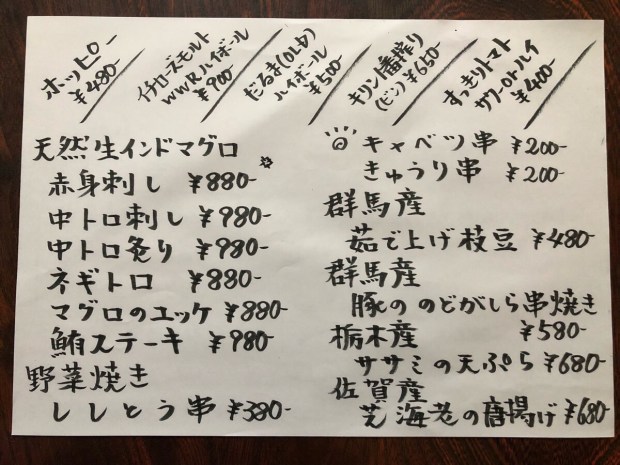 ホッピー
¥480-
イチローズモルト
WWRハイボール
¥900-
だるま(OLD)
ハイボール
¥500-
キリン一番搾り
(ビン) ¥650-
すっきりトマト
サワーorハイ
¥400-
天然生インドマグロ
赤身刺し ¥880-
中トロ刺し ¥980-
中トロ炙り ¥980-
ネギトロ ¥880-
マグロのユッケ ¥880-
鮪ステーキ ¥980-
野菜焼き
ししとう串 ¥380-
キャベツ串 ¥200-
きゅうり串 ¥200-
群馬産
茹で上げ枝豆 ¥480-
群馬産
豚の のどがしら串焼き
¥580-
栃木産
ササミの天ぷら ¥680-
佐賀産
芝海老の唐揚げ ¥680-